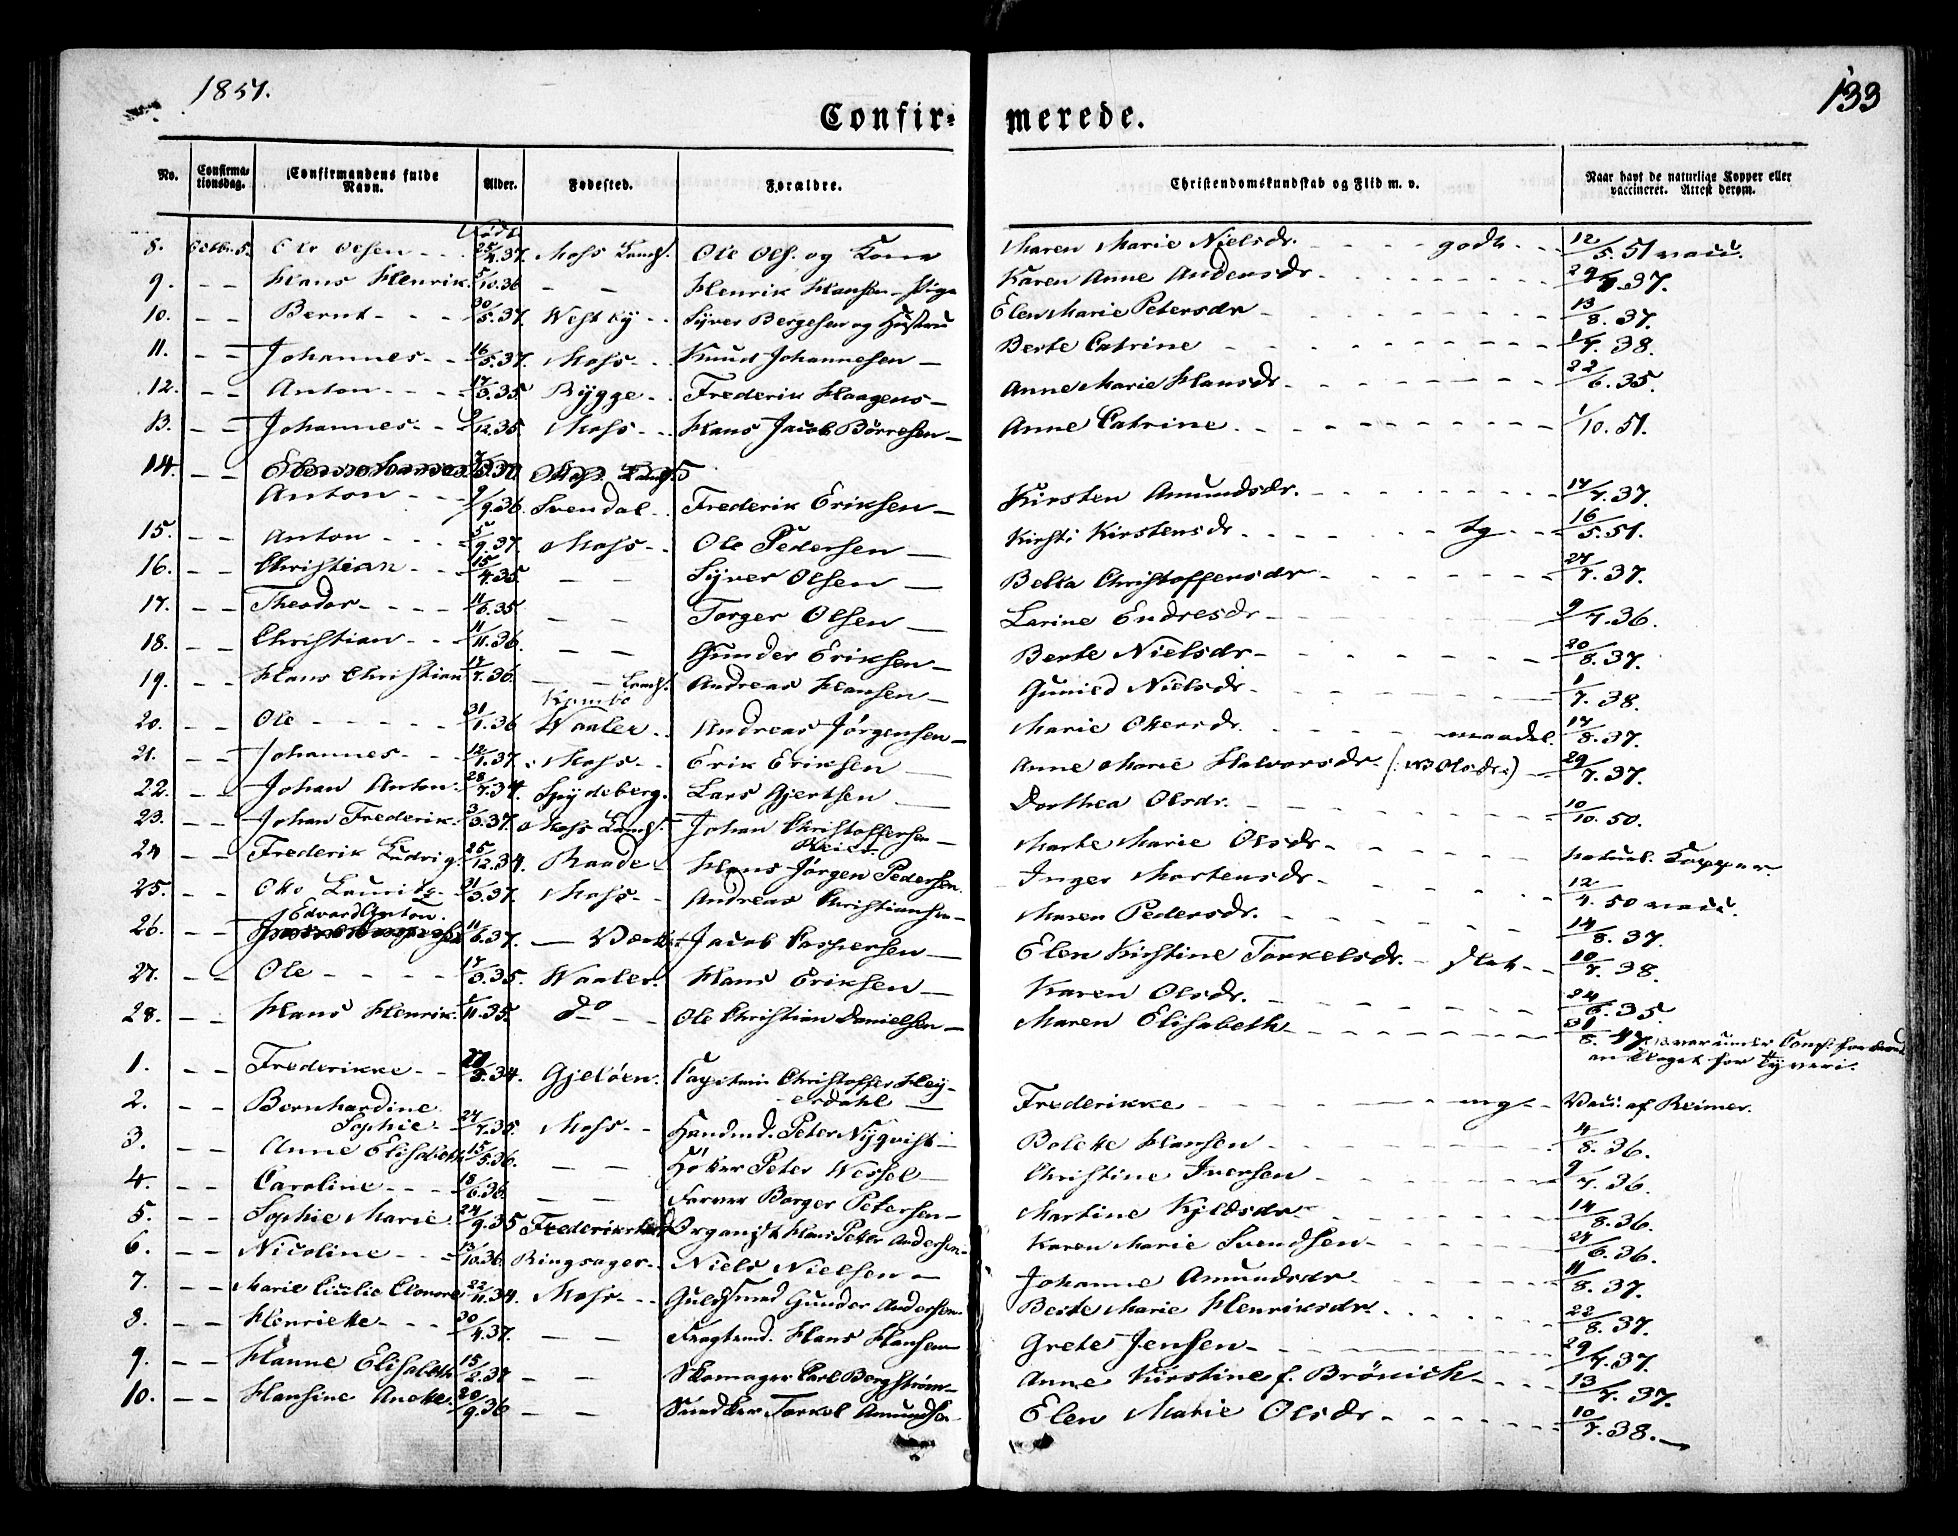 1851.
133
Confir- merede.
No. Confirma-tionsdag. Confirmandens fulde Navn. Alder. Fødested. Forældre. Christendomskundskab og Flid m. v. Naar havt de naturlige Kopper eller vaccineret. Attest derom.
Født
8. Octbr. 5. Ole Olsen - - 25/4.37. Moss Lands. Ole Ols. og Kone Maren Marie Nielsdr. - - - - godt - - 12/5.51 vacc.
9. - - Hans Henrik. 5/10.36 - - Henrik Hansen - Pige Karen Anne Andersdr - - - 29/8.37.
10. - - Bernt - - - 30/5.37. Westby - - Syver Bergesen og Hustru Elen Marie Petersdr - - - 13/8.37.
11. - - Johannes - - 16/5.37. Moss - - Knud Johannesen - Berte Catrine - - - 1/7.38.
12. - - Anton - - - 17/3.35 Rygge - - Frederik Haagens - Anne Marie Hansdr - - - 22/6.35.
13. - - Johannes - - 9/12.35 Moss - - Hans Jacob Börresen - Anne Catrine - - - 1/10.51.
14. - - Moss Lands.
Anton - - - 9/9.36. Svendal - - Frederik Eriksen - Kirsten Amundsdr. - - - 17/7.37.
15. - - Anton - - - 5/9.37. Moss - - Ole Pedersen - Kirsti Kirstensdr - - - tg - - 16/5.51.
16. - - Christian - - 15/4.35 - - Syver Olsen - Bella Christoffersdr - - - 27/7.37.
17. - - Theodor - - - 11/6.35 - - Torger Olsen - Larine Endresdr - - - 9/7.36.
18. - - Christian - - 11/11.36. - - Gunder Eriksen - Berte Nielsdr - - - 20/8.37.
19. - - Hans Christian 17/7.36. - - Lands. Andreas Hansen - Gunild Nielsdr - - - 1/7.38.
Kambo
20. - - Ole - - - - 31/1.36 Waaler - - Andreas Jørgensen - Marie Olersdr. - - - maadel. 17/8.37.
21. - - Johannes - - 12/1.37. Moss - - Erik Eriksen - Anne Marie Halvorsdr (: NB Olsdr:) - 29/7.37.
22. - - Johan Anton. 28/7.34. Spydeberg. Lars Gjertsen - Dorthea Olsdr. - - - 10/10.50.
23. - - Johan Frederik. 3/3.37. Moss Lands. Johan Christoffersen - Marte Marie Olsdr - - - Natural. Kopper.
24 - - Frederik Ludvig. 25/12.34. Raade - Hans Jørgen Pedersen. Inger Mortensdr - - - 12/7.50 vacc.
25. - - Otto Lauritz - 31/3.37. Moss - - Andreas Christiansen - Maren Pedersdr. - - - 14/8.37.
Edvard Anton.
26. - - 11/6.37. - Jacob Caspersen - Elen Kirstine Torkelsdr. - slet - - 10/7.38.
27. - - Ole - - - - 17/3.35. Waaler. Hans Eriksen - Karen Olsdr. - - - 24/6.35.
28. - - Hans Henrik. 11.35. do - Ole Christian Danielsen - Maren Elisabeth - - - 31/8.47. NB var under Conf.
for Tyveri.
1. - - Frederikke - - 3.34. Gjelöen. Capitain Christoffer Hey-
erdahl - Frederikke - - - mg - - Vacc. af Reimer.
2. - - Bernhardine
Sophie - 27/7.35. Moss - - Handmd. Peter Nyqvist - Bolette Hansen - - - 4/8.36.
3. - - Anne Elisabeth 15/5.36. - - Höker Peter Wessel - Christine Iversen - - - 9/7.36.
4. - - Caroline - - - 18/6.36. - - Farver Borger Petersen - Martine Kjeldsdr - - - 14/8.36.
5. - - Sophie Marie. 24/9.35 Frederikstad Organist Hans Peter Andersen - Karen Marie Svendsen - - - 27/6.36.
6. - - Nicoline - - 13/10.36. Ringsager - Niels Nielsen - Johanne Amundsdr - - - 11/8.37.
7. - - Marie Cicilie Elenore 22/11.34. Moss - - Guldsmed Gunder Andersen. Berte Marie Henriksdr. - - - 22/8.37.
8. - - Henriette - - - 30/4.37. - - Fragtmd. Hans Hansen - Grete Jensen - - - 29/7.37.
9. - - Hanne Elisabeth 15/2.37 - - Skomager Carl Bergström - Anne Kirstine f. Brönich - - - 13/7.37.
10. - - Hansine Anette. 20/9.36 - - Snedker Torkel Amundsen - Elen Marie Olsdr - - - 10/7.38. -